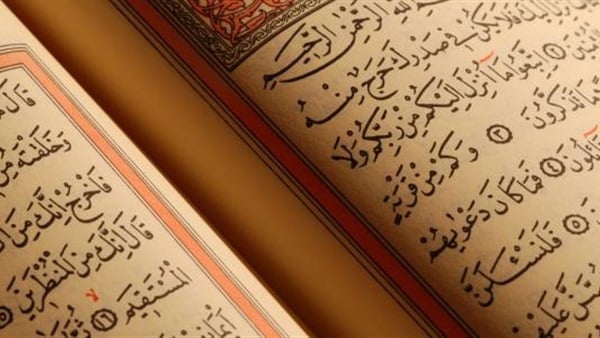 الله الرَّحْمٰنِ الرَّحِيمِ
إِلَيْكَ فَلَا يَكُنْ فِي صَدْرِكَ حَرَجٌ مِنْهُ
اِتَّبِعُوا مَا أُنْزِلَ إِلَيْكُمْ مِنْ رَبِّكُمْ وَلَا
مَا تَذَكَّرُونَ ٣ وَكَمْ مِنْ قَرْيَةٍ
٤ فَمَا كَانَ دَعْوٰيهُمْ
٥ فَلَنَسْـَٔلَنَّ
عَلَيْهِمْ
قَالَ مَا
وَخَلَقْتَهُ مِنْ
فَاخْرُجْ إِنَّكَ مِنَ
قَالَ إِنَّكَ مِنَ الْمُنْظَرِينَ ١٥
الْمُسْتَقِيمَ ١٦ ثُمَّ